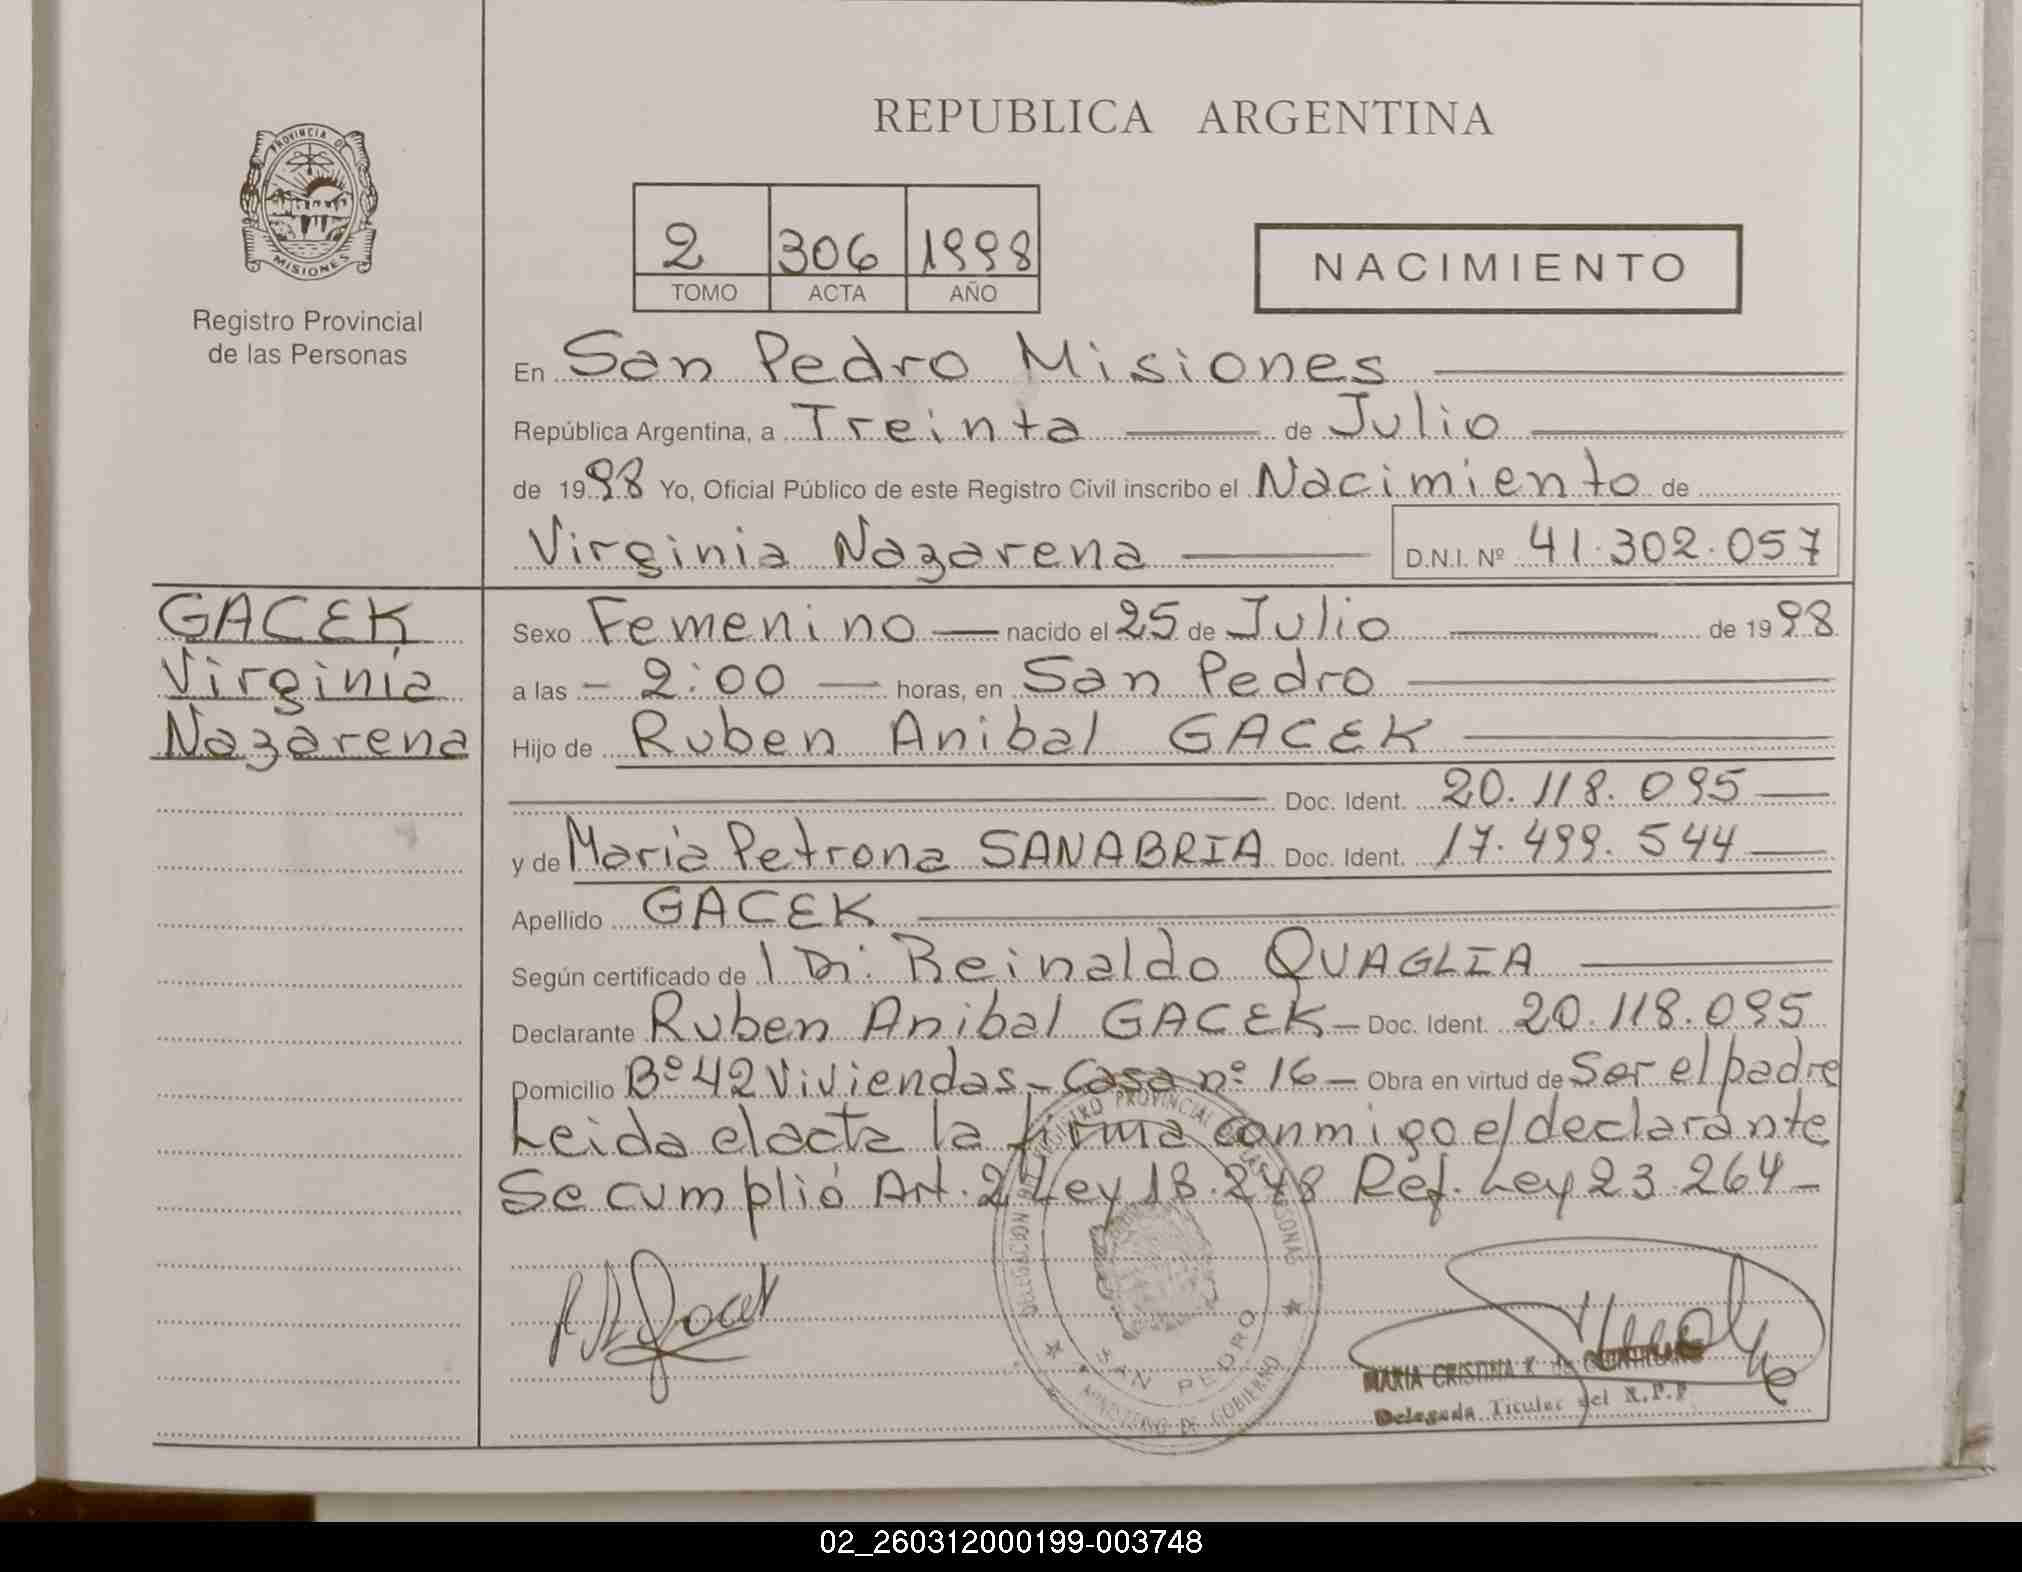 REPUBLICA ARGENTINA
PROVINCIA DE
MISIONES
Registro Provincial
de las Personas
2 306 1998
TOMO ACTA AÑO
NACIMIENTO
En San Pedro Misiones
República Argentina, a Treinta de Julio
de 1998 Yo, Oficial Público de este Registro Civil inscribo el Nacimiento de
Virginia Nazarena D.N.I. Nº 41.302.057
GACEK
Virginia
Nazarena
Sexo Femenino nacido el 25 de Julio de 1998
a las - 2:00 horas, en San Pedro
Hijo de Ruben Anibal GACEK
Doc. Ident. 20.118.095
y de Maria Petrona SANABRIA Doc. Ident. 17.499.544
Apellido GACEK
Según certificado de Reinaldo QUAGLIA
Declarante Ruben Anibal GACEK - Doc. Ident. 20.118.095
Domicilio Bº 42 Viviendas - Casa nº 16 - Obra en virtud de Ser el padre
Leida el acta la firma conmigo el declarante
Se cumplió Art. 2 Ley 18.248 Ref. Ley 23.264 -
DELEGACION REGISTRO PROVINCIAL DE LAS PERSONAS
SAN PEDRO
MINISTERIO DE GOBIERNO
MARIA CRISTINA K de
Delegada Titular del R.P.P
02_260312000199-003748